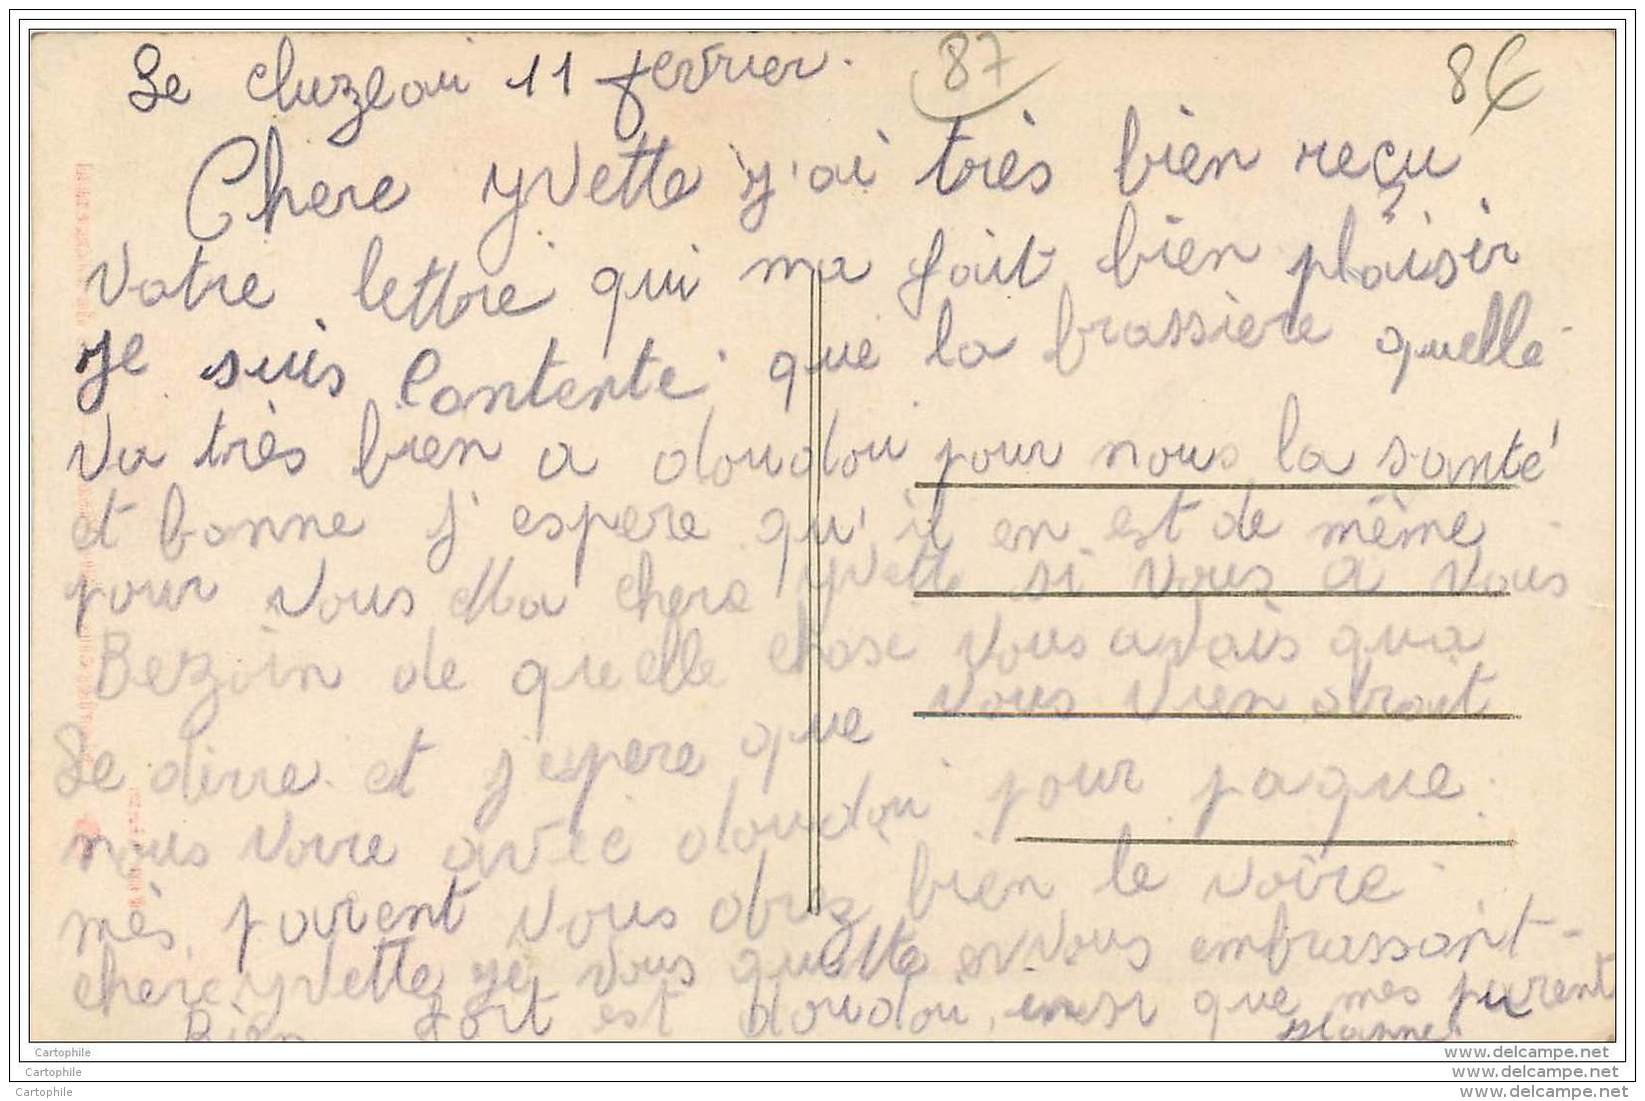 Le cluzeau 11 fevrier.
87
86
Chere yvette j'ai très bien reçu
votre lettre qui ma fait bien plaisir
je suis contente que la brassiere quelle
va très bien a doudou pour nous la santé
et bonne j'espere qu'il en est de même
pour vous Ma chere yvette si vous a vous
Bezoin de quelle chose vous avais qua
Le dirre et j'espere que vous viendrait
nous voire avec doudou pour paque
mès parent vous drez bien le voire
chere yvette je vous quitte en vous embrassant
Bien fort est doudou, insi que mes parent
Cartophile
Cartophile
Cartophile
www.delcampe.net
www.delcampe.net
www.delcampe.net